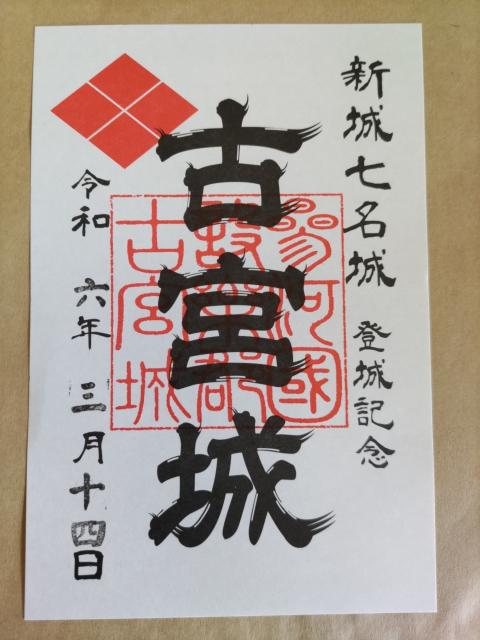 新城七名城 登城記念
古宮城
参河國
設楽郡
古宮城
令和 六年 三月十四日